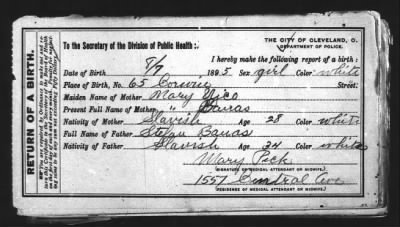 RETURN OF A BIRTH.
THE CITY OF CLEVELAND, O.
DEPARTMENT OF POLICE.
To the Secretary of the Division of Public Health:
I hereby make the following report of a birth:
Date of Birth 8/7 1895 Sex girl Color white
Place of Birth, No. 65 Street:
Maiden Name of Mother Mary
Full Present Name of Mother " Banas
Nativity of Mother Slavish Age 28 Color white
Full Name of Father Stefan Banas
Nativity of Father Slavish Age 34 Color white
Mary Peck
(SIGNATURE OF MEDICAL ATTENDANT OR MIDWIFE)
1557 Central Ave
(RESIDENCE OF MEDICAL ATTENDANT OR MIDWIFE)